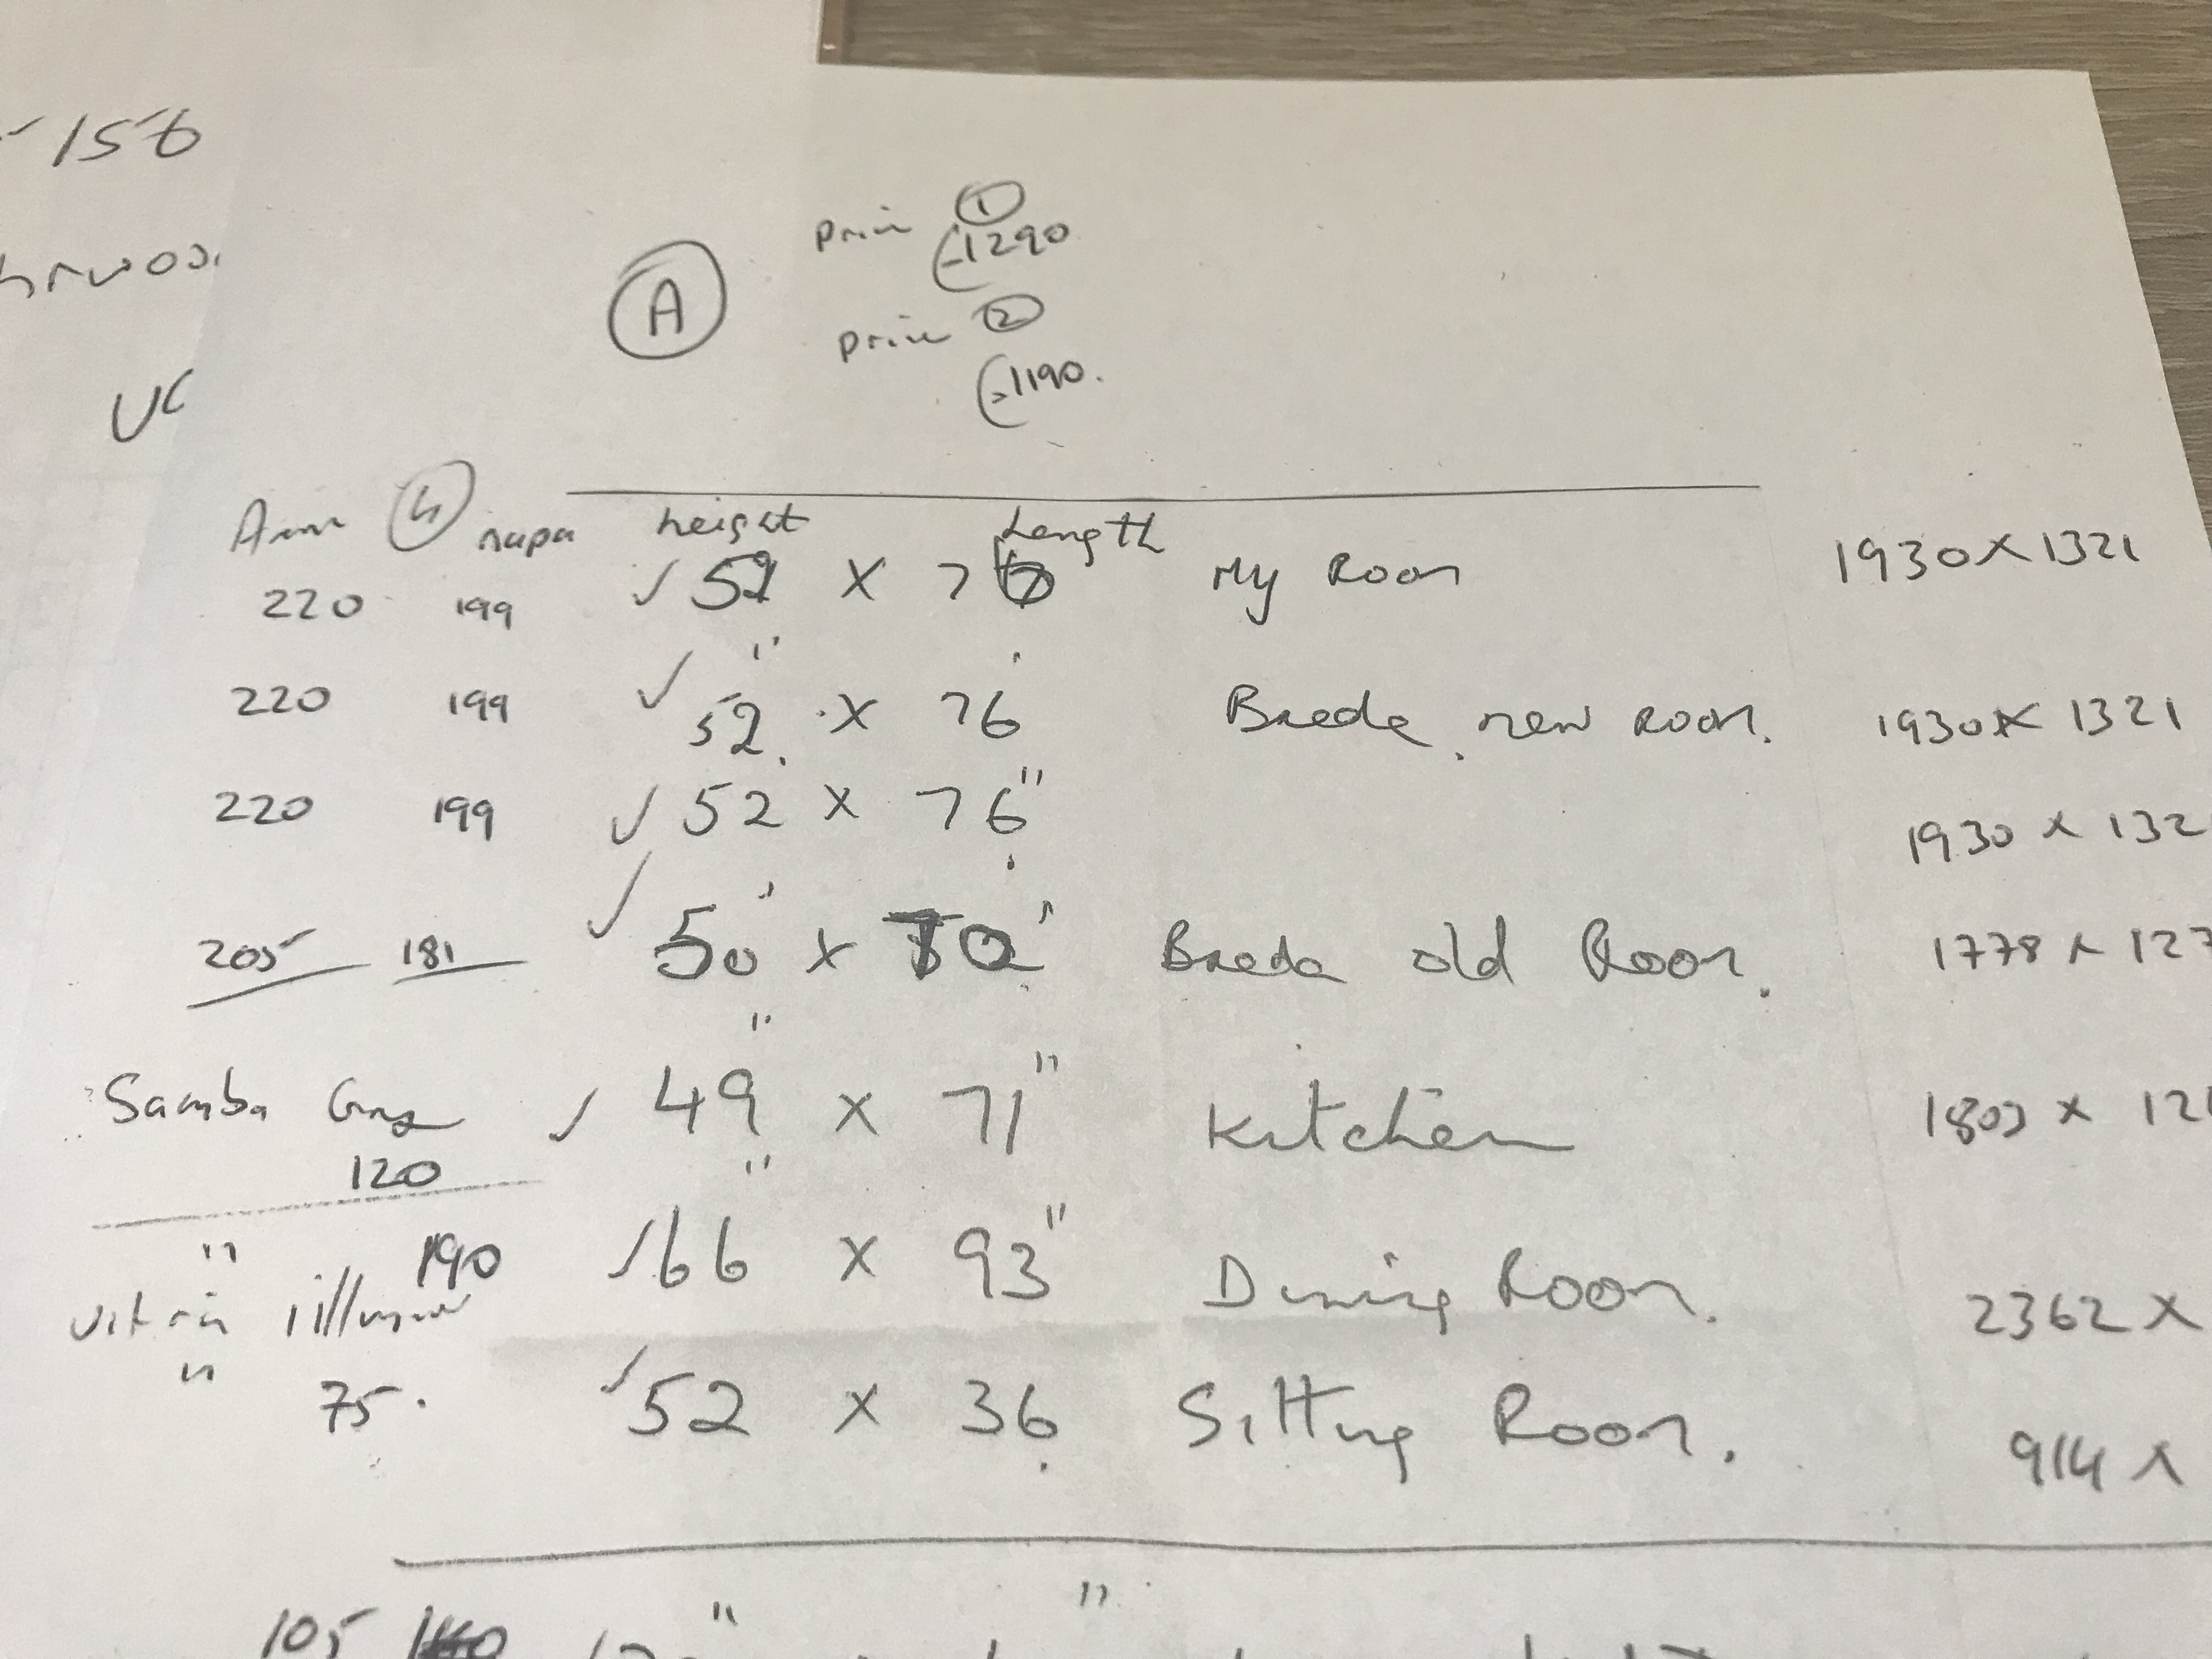 156
A price ① 1290
price ② 1190.
④ napa height Length
220 199 ✓ 52 x 76 My Room 1930 x 1321
220 199 ✓ 52" x 76 Breda new Room. 1930 x 1321
220 199 ✓ 52 x 76" 1930 x 132
205 181 ✓ 50 x 70 Breda old Room. 1778 x 127
Samba ✓ 49" x 71" Kitchen x 121
120
" 190 ✓ 66" x 93" Dining Room. 2362 x
" 75. ✓ 52 x 36 Sitting Room. 914 x
105 " "